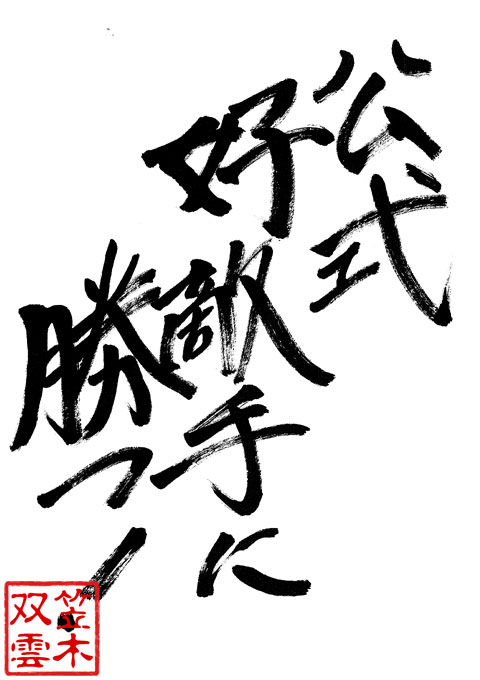 公式
好敵手に
勝つ！
笠木
双雲